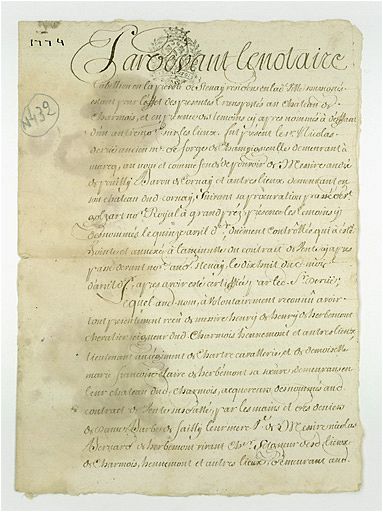 1774
N° 32
Pardevant Le notaire
Tabellion en la prévôté de Stenay résident en lad. Ville soussigné
estant pour l'effet des presentes transporté au chateau de
Charmois, et en presence des temoins cy apres nommés à deffaut
d'un autre no.re sur les lieux. fut present le s.r Nicolas
ancien m.e de forges de demeurant à
marcq, au nom et comme fondé de pouvoir de Messire andré
de pouilly Baron de Cornay et autres lieux demeurant en
son chateau dud. Cornay, suivant la procuration passée par
no.re Royal à grandpré presence les temoins y
denommés le quinze avril d.r duement controllée qui a esté
jointe et annexée à la minutte du contrat de Vente cy apres
passé devant no.re aud. Stenay, le dix huit dud. mois
d'avril d.r apres avoir esté certiffiée par led. S.r
Lequel aud. nom, à volontairement reconnû avoir
tout presentement receu de messire henry de henry de herbemont
chevalier seigneur dud. Charmois hennemont et autres lieux
lieutenant au regiment de Chartre cavallerie, et de demoiselle
marie françoise claire de herbemont sa soeure demeurans en
leur chateau dud. Charmois, acquereurs denommés aud.
contract de Vente susdatté, par les mains et des deniers
de dame Barbe de sailly leur mere V.e de Messire nicolas
Bernard de herbemont vivant ch.er Seigneur desd. lieux
de Charmois, hennemont et autres lieux, demeurant aud.